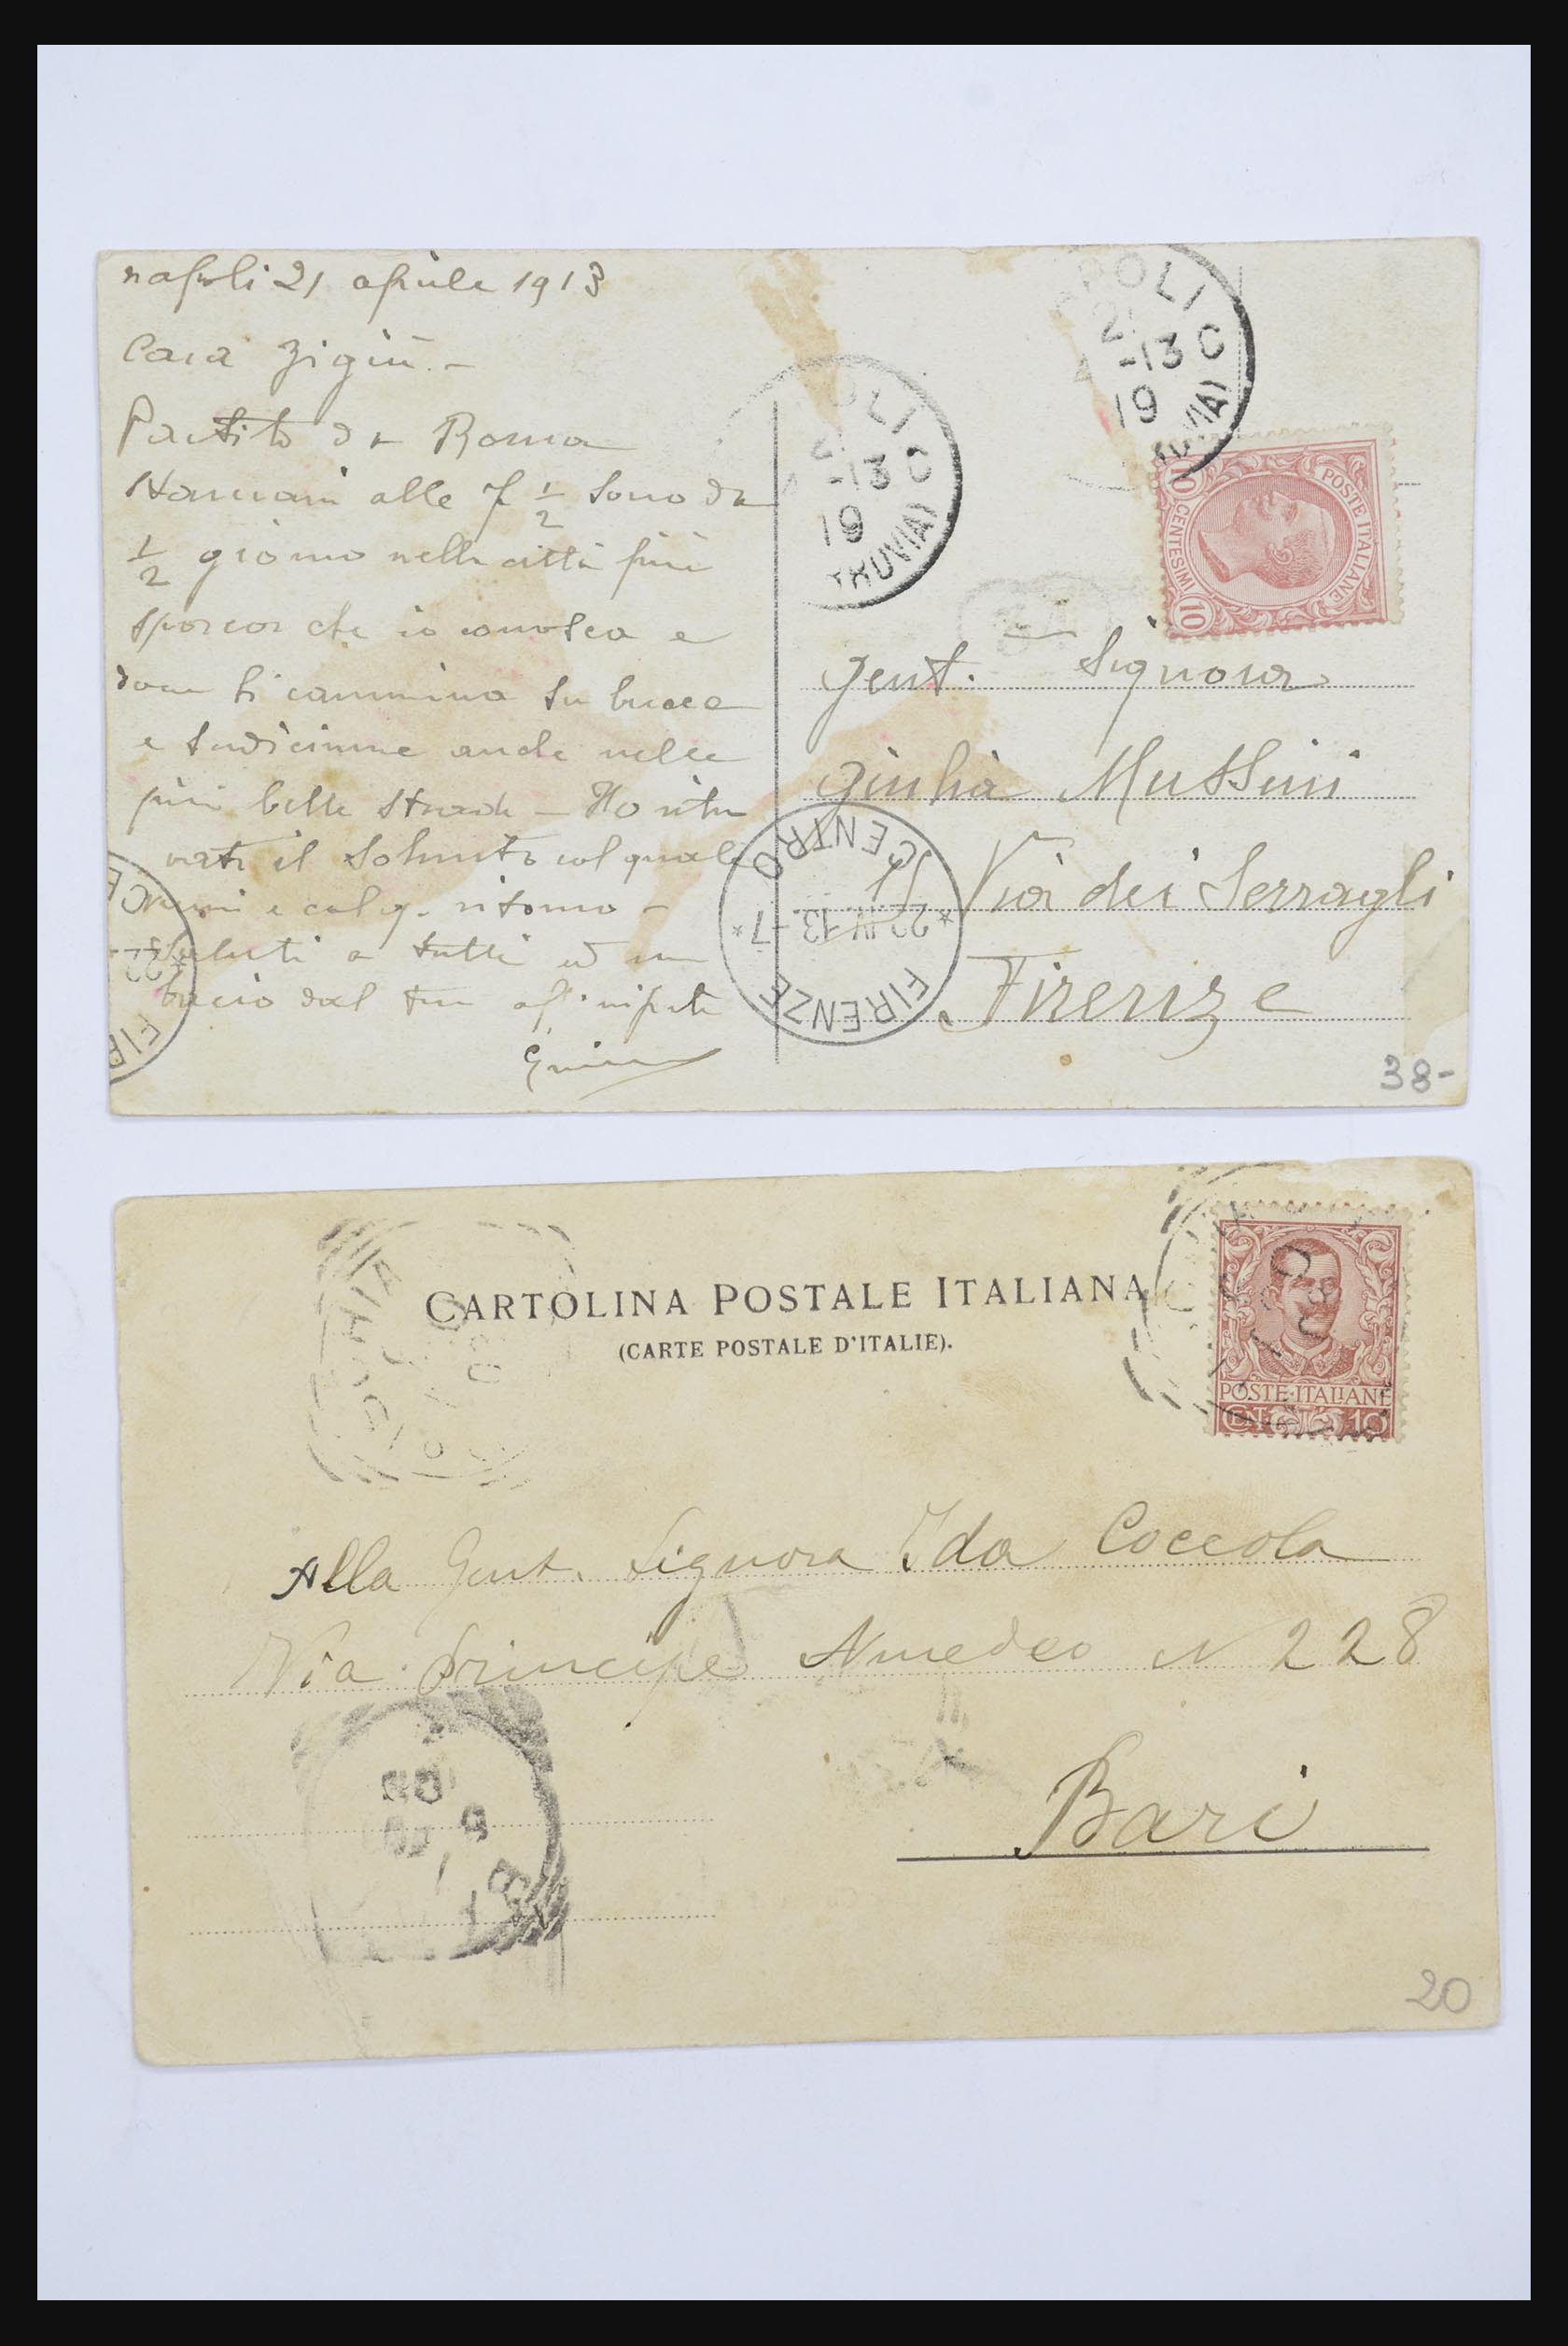 napoli 21 aprile 1913
Cara Zigiù. -
Partito da Roma
Stamani alle 7 1/2 sono da
1/2 giorno nella città più
sporca che io conosca e
dove si cammina su bucce
e sudiciume anche nelle
più belle strade - Ho ritro
vato il Solmito col quale
e col q. ritorno -
Saluti a tutti ed un
bacio dal tuo aff. nipote
NAPOLI
21
-13
19
(FERROVIA) C
NAPOLI
21
-13
19
(FERROVIA) C
POSTE ITALIANE
10 CENTESIMI 10
Gent. Signora
Giulia Mussini
51 Via dei Serragli
Firenze
FIRENZE
CENTRO
*22.IV.13.-7*
38-
CARTOLINA POSTALE ITALIANA
(CARTE POSTALE D'ITALIE).
POSTE·ITALIANE
CENT. 10
Alla Gent. Signora Ida Coccola
Via Principe Amedeo N 228
Bari
20